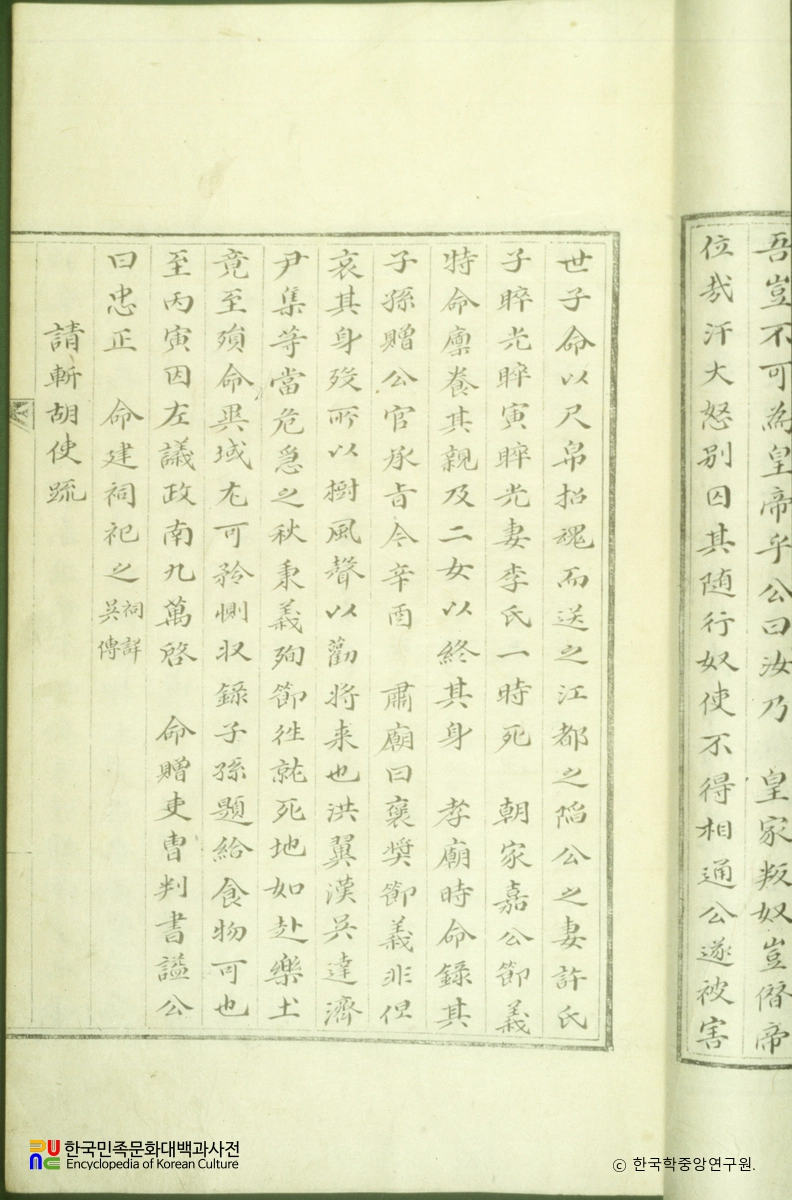 吾豈不可為皇帝乎公曰汝乃 皇家叛奴豈僭帝
位㢤汗大怒别囚其随行奴使不得相通公遂被害
世子命以尺帛招魂而送之江都之陷公之妻許氏
子晬光晬寅晬光妻李氏一時死 朝家嘉公節義
特命廪養其親及二女以終其身 孝廟時命錄其
子孫贈公官承旨今辛酉 肅廟曰褒奬節義非但
哀其身殁所以樹風聲以勸将来也洪翼漢吳達濟
尹集等當危急之秋秉義殉節徃就死地如赴樂土
竟至殞命異域尤可矜惻収錄子孫題給食物可也
至丙寅因左議政南九萬啓 命贈吏曺判書謚公
曰忠正 命建祠祀之祠詳吳傳
請斬胡使疏
한국민족문화대백과사전
Encyclopedia of Korean Culture
© 한국학중앙연구원.